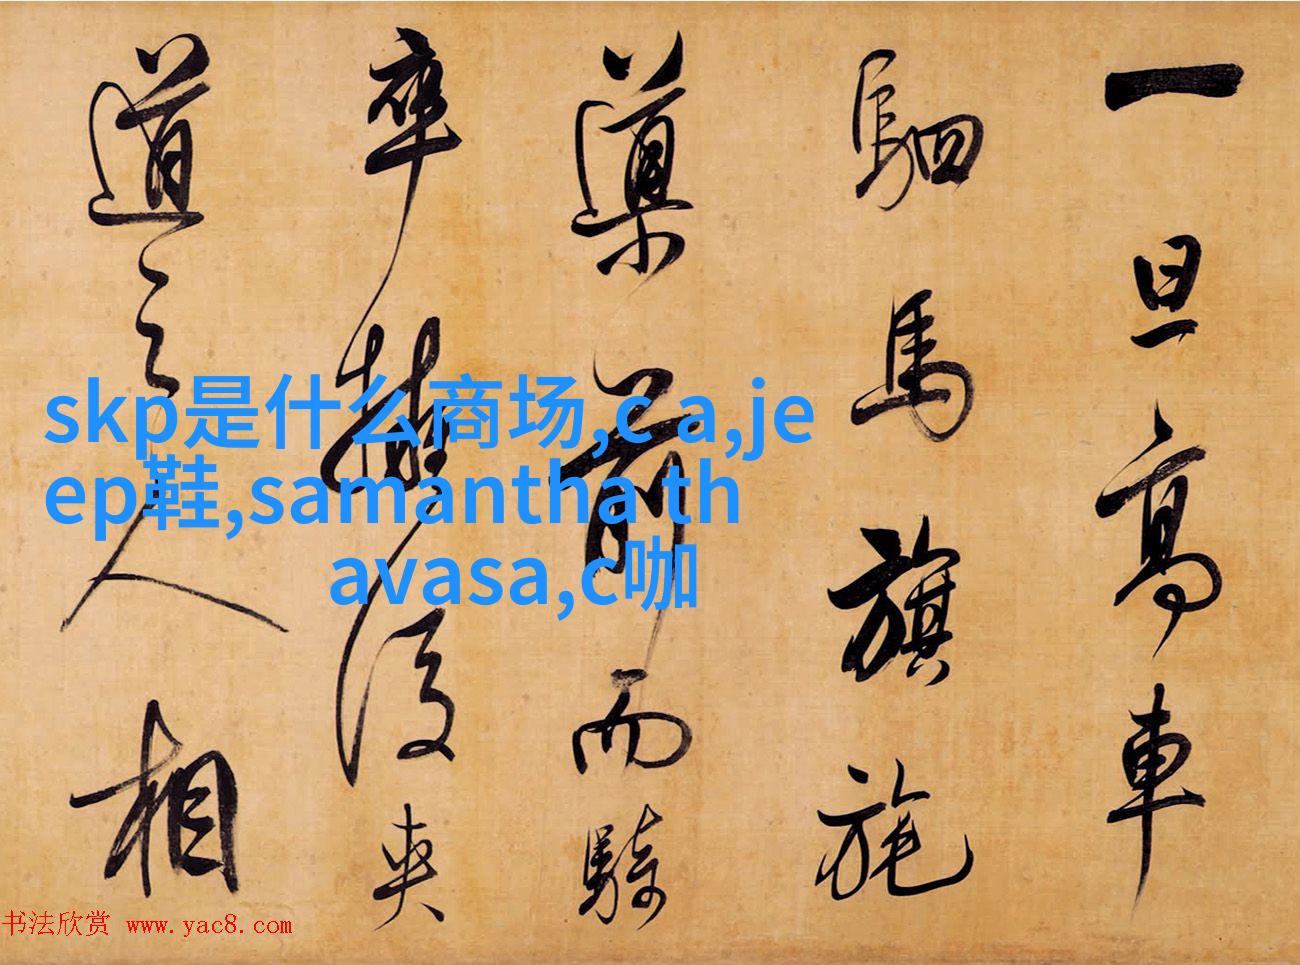 一旦高車
駟馬旗旄
導前而騎
卒擁後夾
道之人相
skp是什么商场,c a,je
ep鞋,samantha th
avasa,c咖
书法欣赏 www.yac8.com